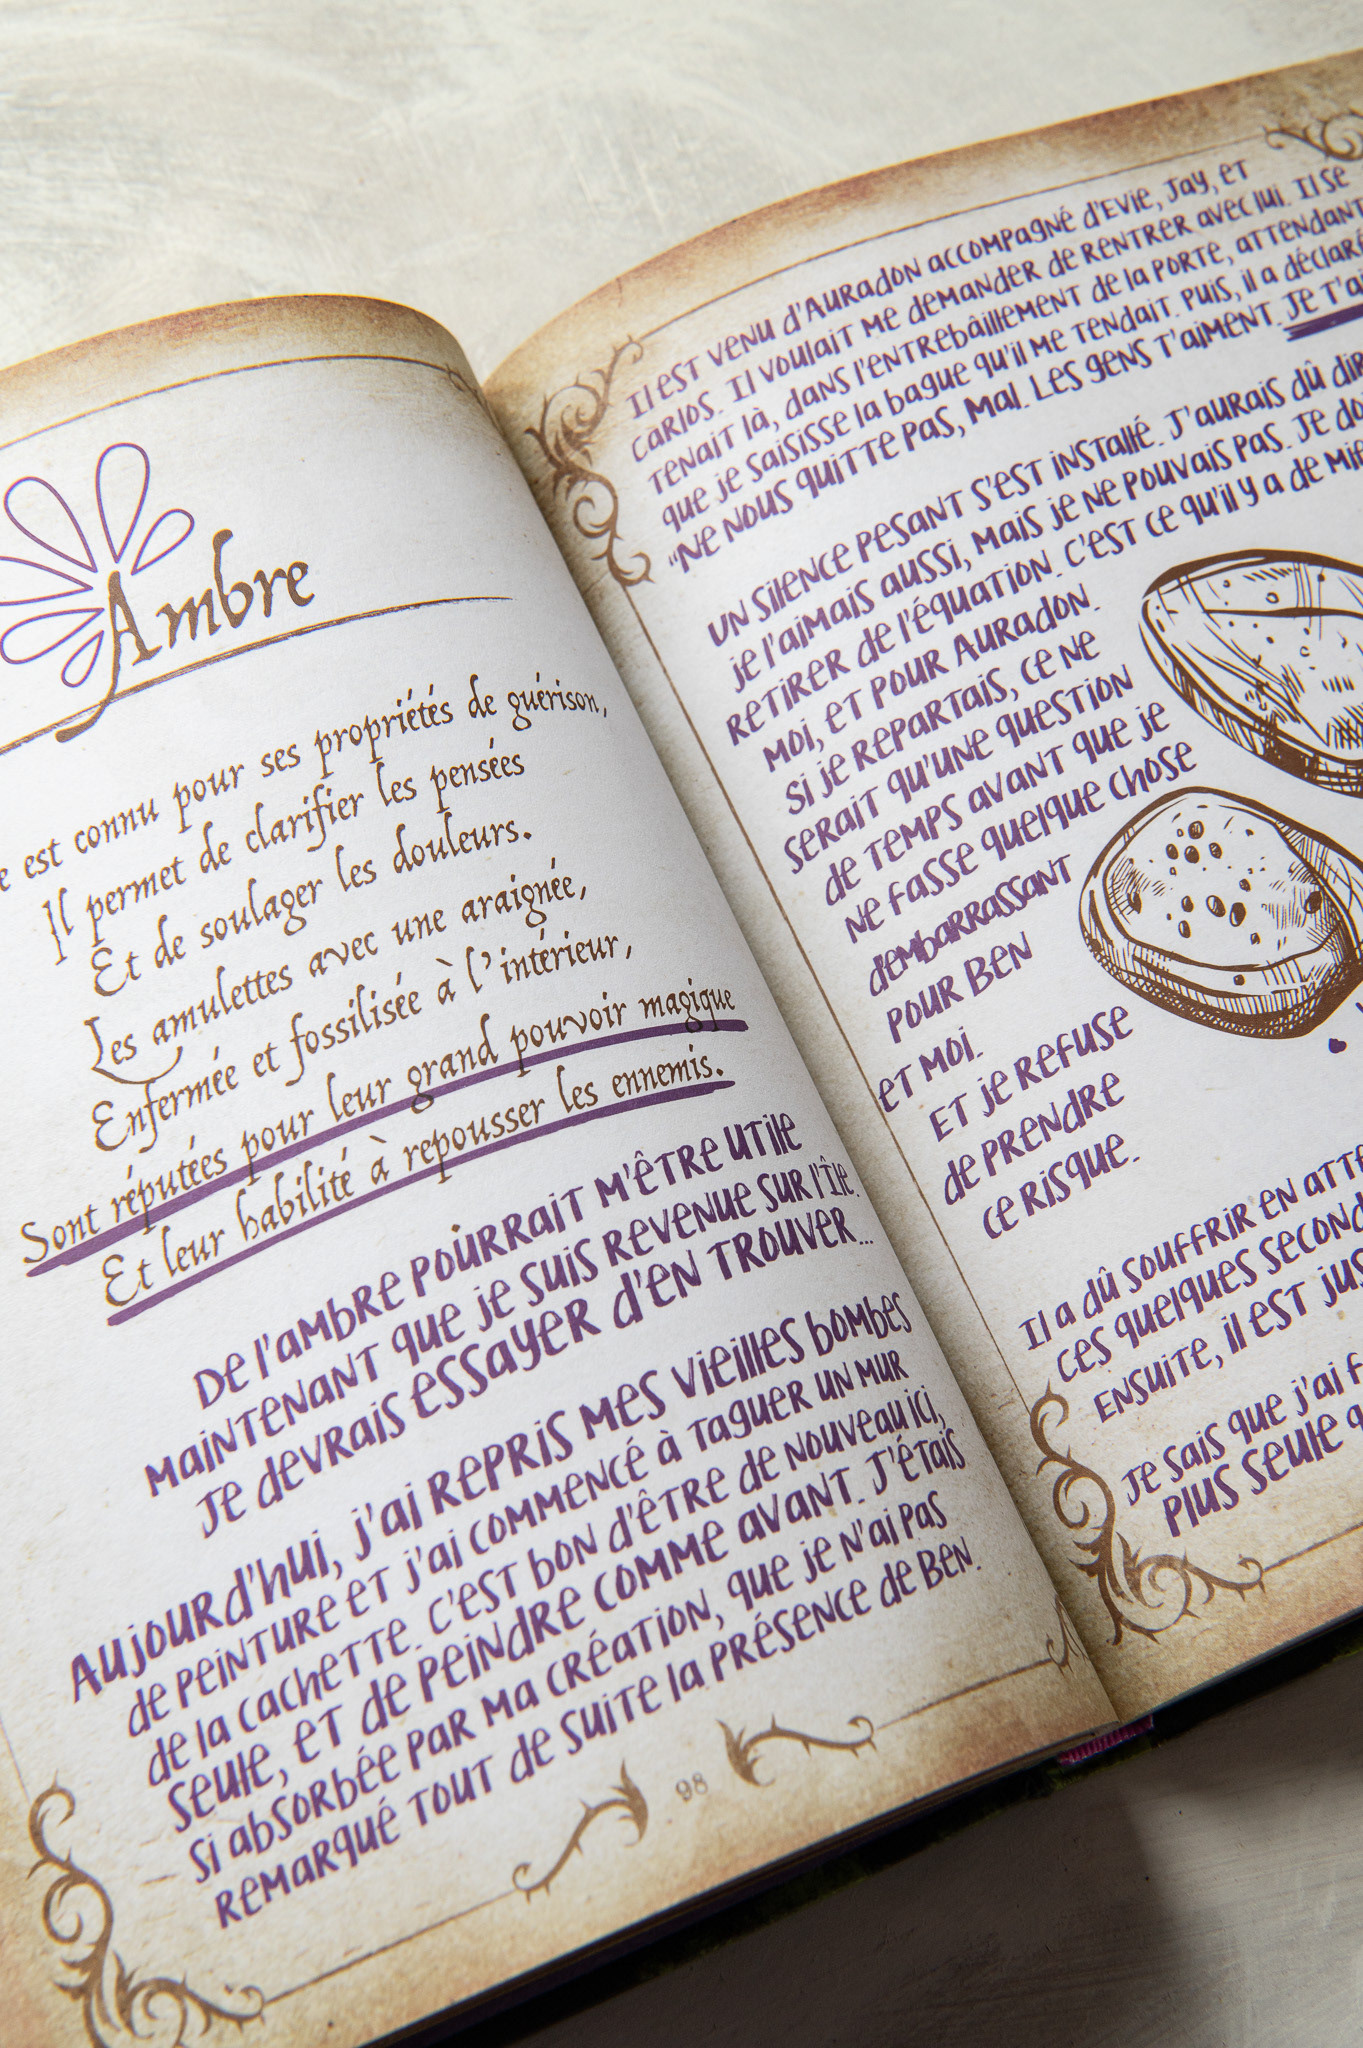 Ambre
est connu pour ses propriétés de guérison,
Il permet de clarifier les pensées
Et de soulager les douleurs.
Les amulettes avec une araignée,
Enfermée et fossilisée à l'intérieur,
Sont réputées pour leur grand pouvoir magique
Et leur habilité à repousser les ennemis.
De l'ambre pourrait m'être utile
maintenant que je suis revenue sur l'Île.
Je devrais essayer d'en trouver...
Aujourd'hui, j'ai repris mes vieilles bombes
de peinture et j'ai commencé à taguer un mur
de la cachette. C'est bon d'être de nouveau ici,
seule, et de peindre comme avant. J'étais
si absorbée par ma création, que je n'ai pas
remarqué tout de suite la présence de Ben.
98
Il est venu d'Auradon accompagné d'Evie, Jay, et
Carlos. Il voulait me demander de rentrer avec lui. Il se
tenait là, dans l'entrebâillement de la porte, attendant
que je saisisse la bague qu'il me tendait. Puis, il a déclaré
"Ne nous quitte pas, Mal. Les gens t'aiment. Je t'ai
Un silence pesant s'est installé. J'aurais dû dir
je l'aimais aussi, mais je ne pouvais pas. Je do
retirer de l'équation. C'est ce qu'il y a de mie
moi, et pour Auradon.
Si je repartais, ce ne
serait qu'une question
de temps avant que je
ne fasse quelque chose
d'embarrassant
pour Ben
et moi.
Et je refuse
de prendre
ce risque.
Il a dû souffrir en atte
ces quelques second
Ensuite, il est jus
Je sais que j'ai f
plus seule q